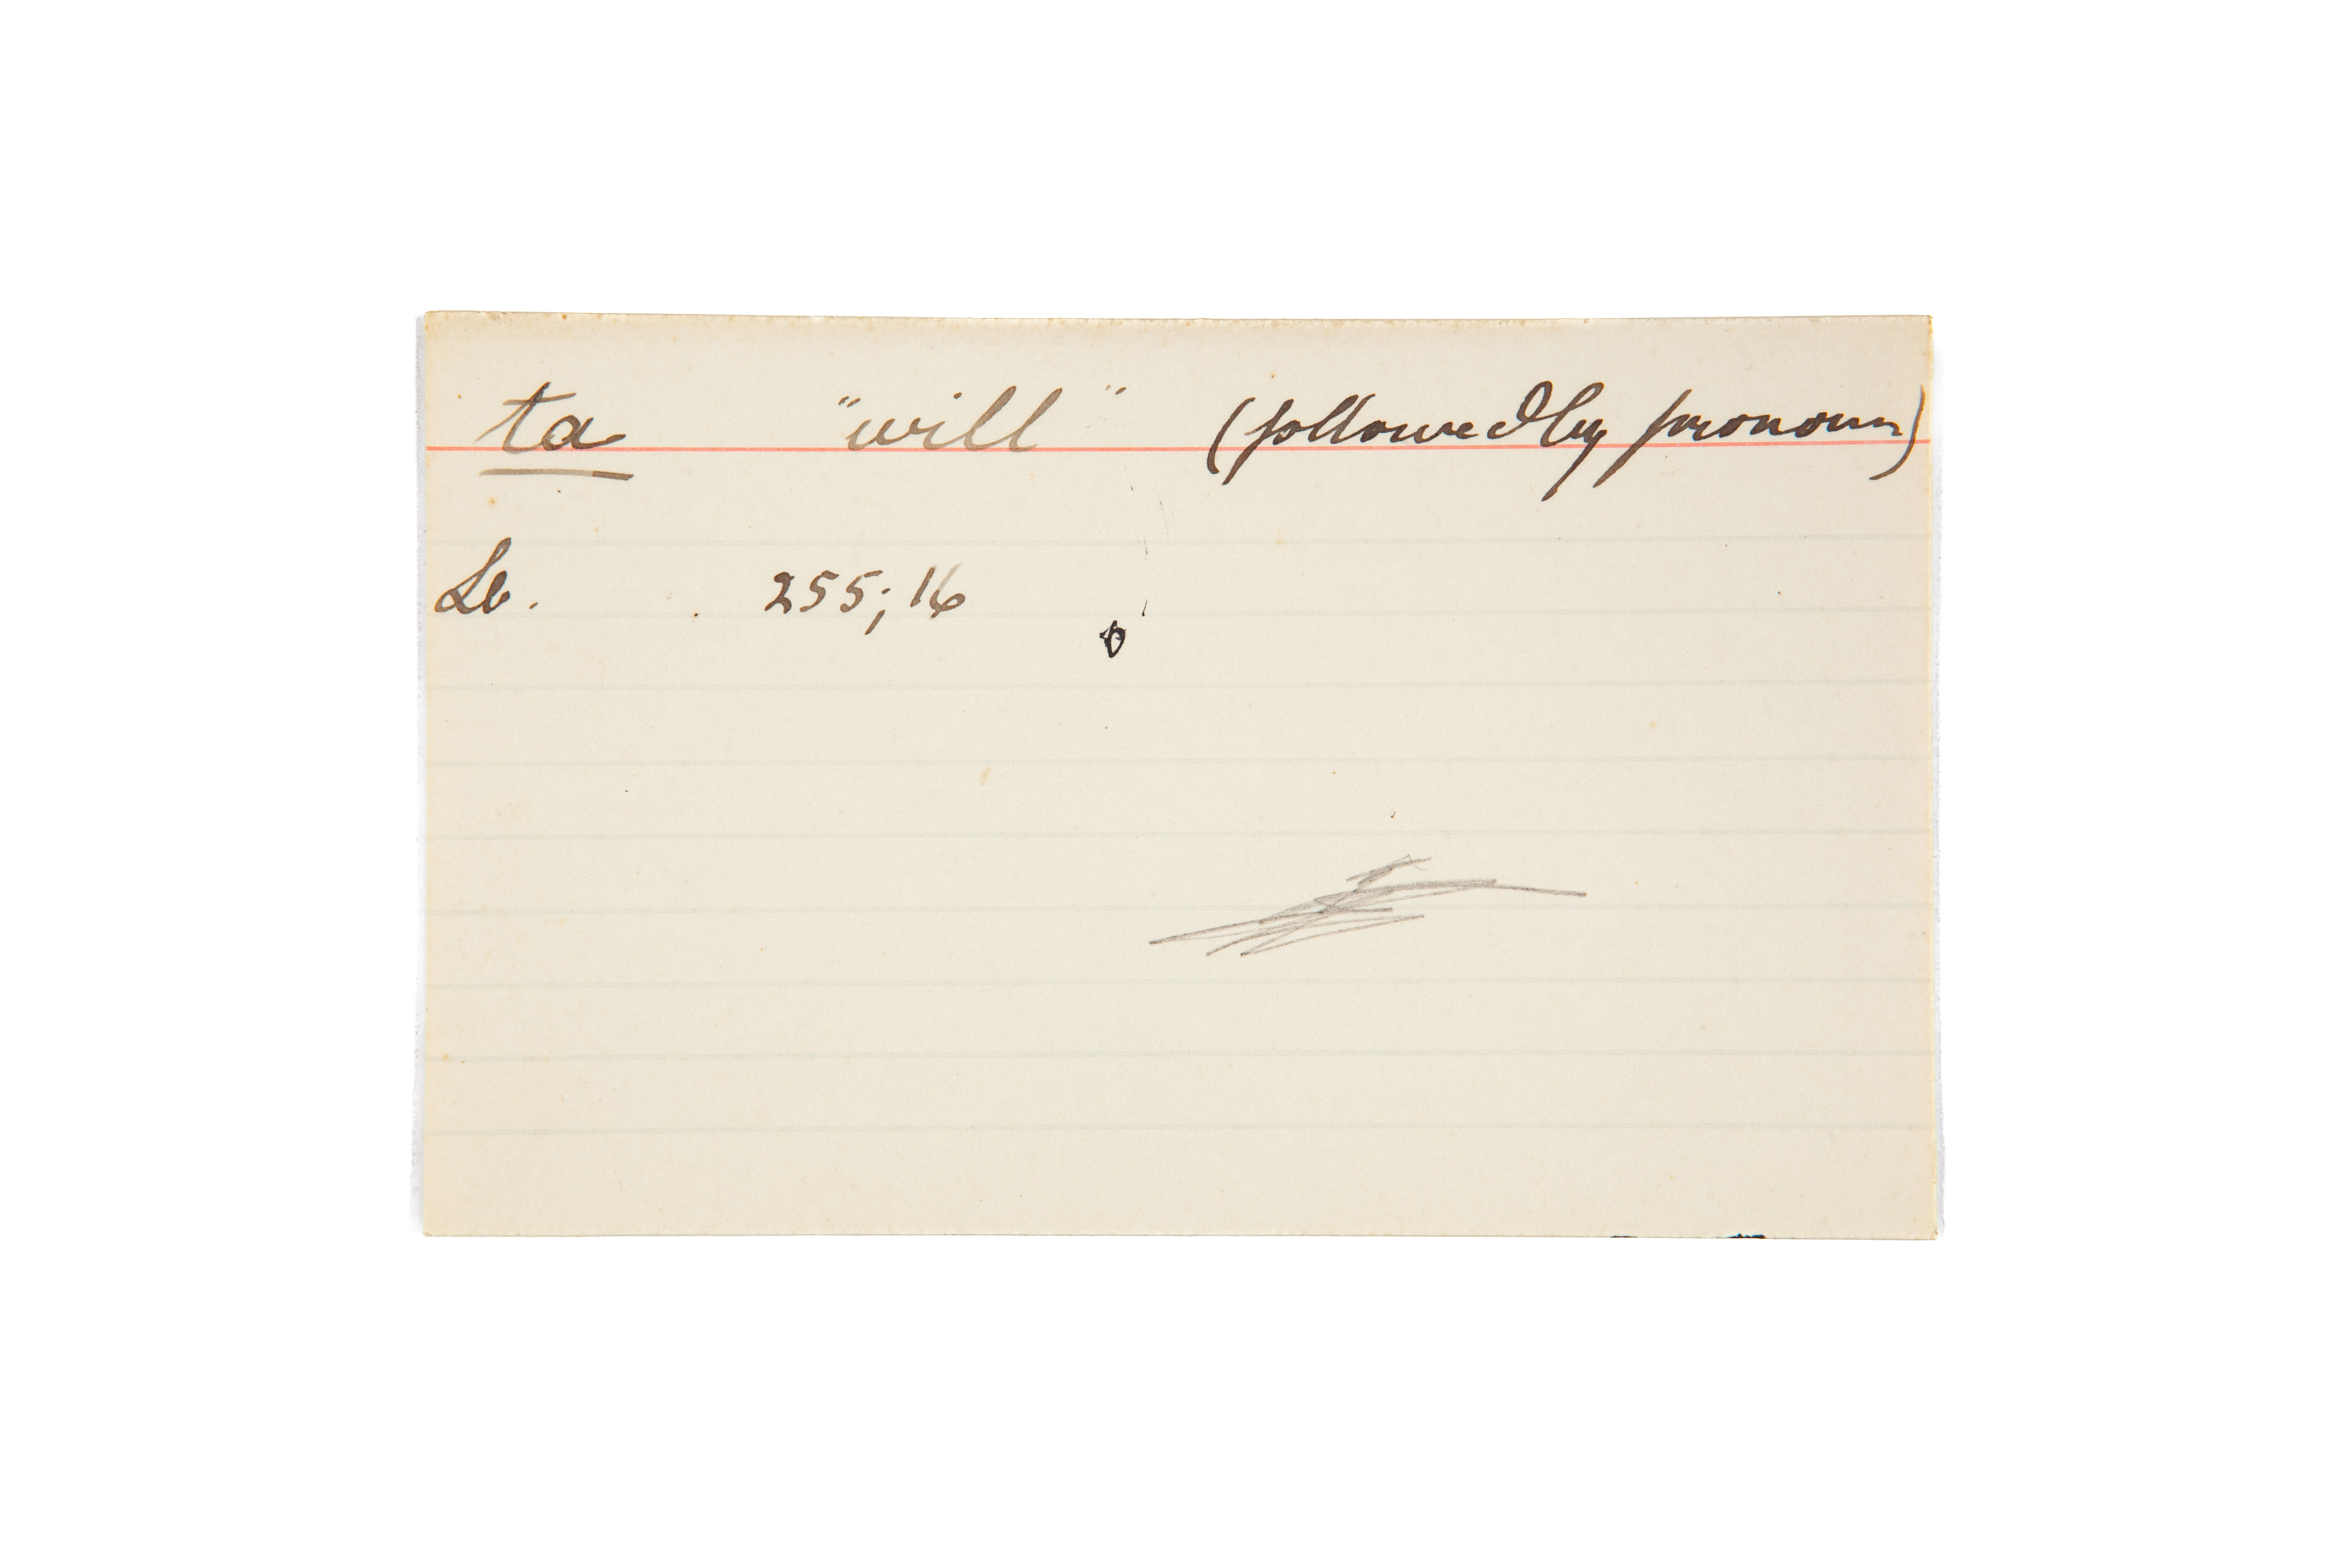 ta "will" (followed by pronoun)
Lb. 255; 16